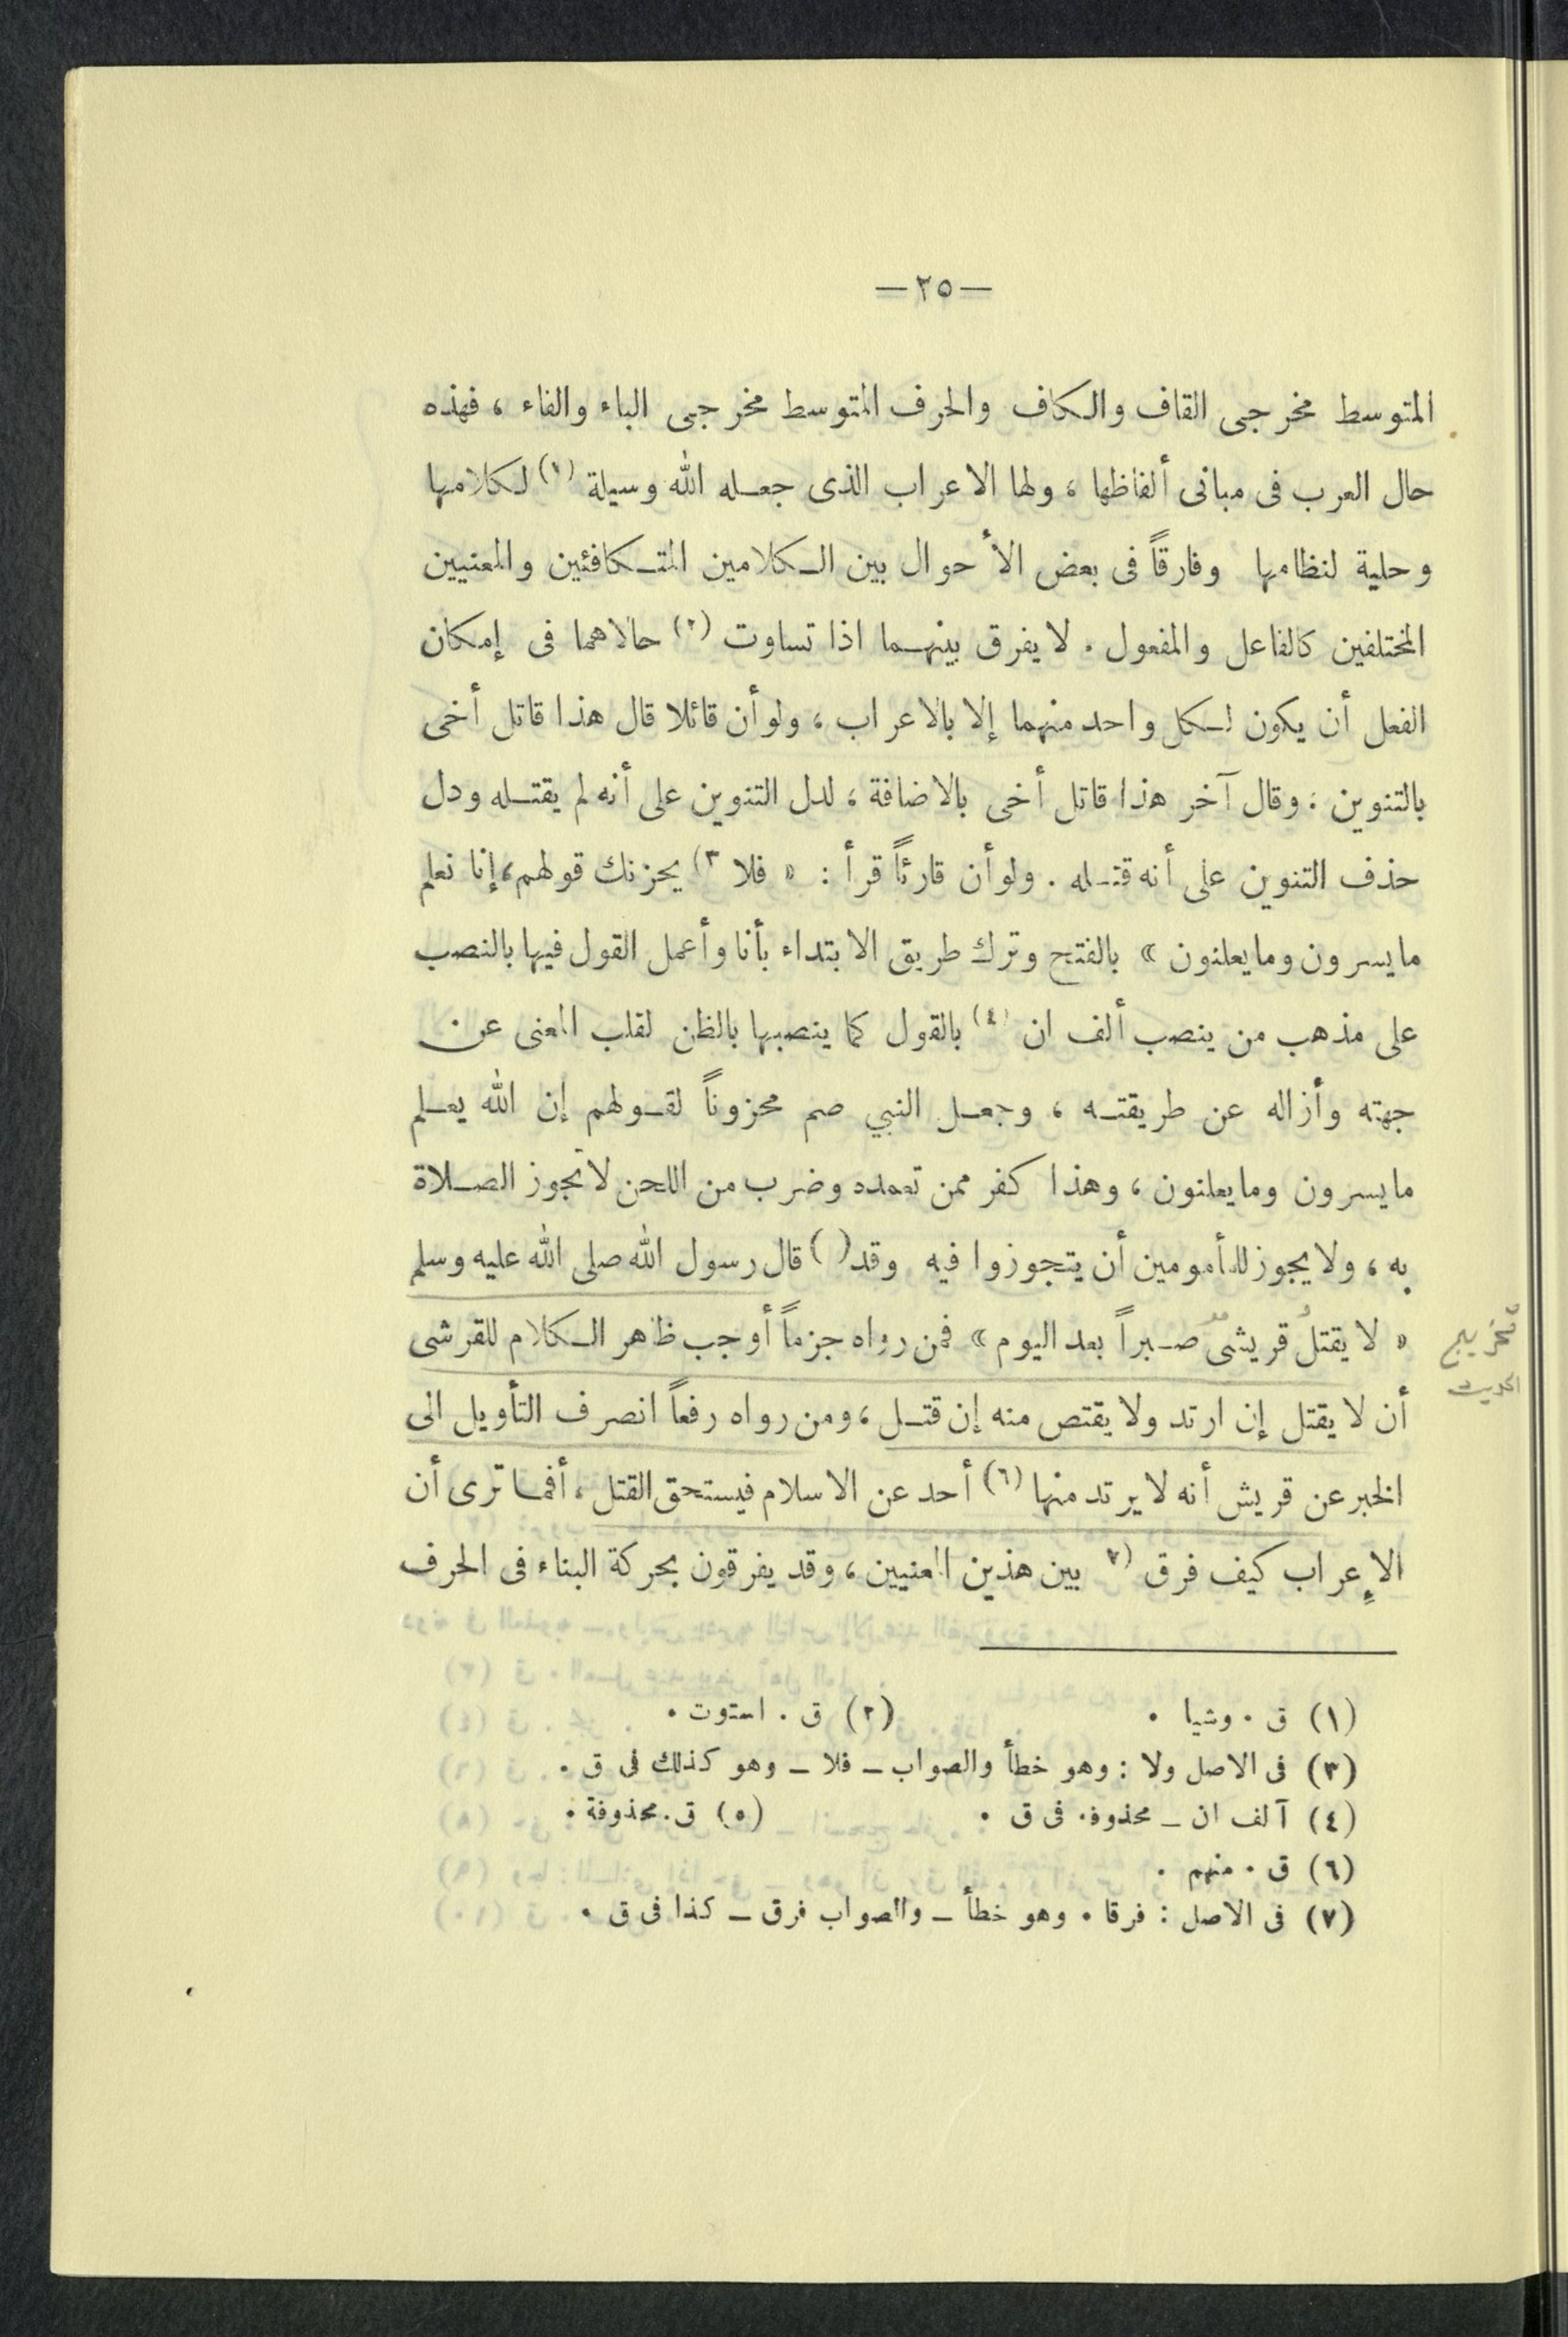 —٢٥—
المتوسط مخرجى القاف والكاف والحرف المتوسط مخرجى الباء والفاء ، فهذه
حال العرب فى مبانى ألفاظها ، ولها الاعراب الذى جعله الله وسيلة (١) لكلامها
وحلية لنظامها وفارقاً فى بعض الأحوال بين الكلامين المتكافئين والمعنيين
المختلفين كالفاعل والمفعول . لا يفرق بينهما اذا تساوت (٢) حالاهما فى إمكان
الفعل أن يكون لكل واحد منهما إلا بالاعراب ، ولو أن قائلا قال هذا قاتل أخى
بالتنوين ، وقال آخر هذا قاتل أخى بالاضافة ، لدل التنوين على أنه لم يقتله ودل
حذف التنوين على أنه قتله . ولو أن قارئاً قرأ : « فلا ٣) يحزنك قولهم ، إنا نعلم
ما يسرون وما يعلنون » بالفتح وترك طريق الابتداء بأنا وأعمل القول فيها بالنصب
على مذهب من ينصب ألف ان (٤) بالقول كما ينصبها بالظن لقلب المعنى عن
جهته وأزاله عن طريقته ، وجعل النبي صم محزوناً لقولهم إن الله يعلم
ما يسرون وما يعلنون ، وهذا كفر ممن تعمده وضرب من اللحن لا تجوز الصلاة
به ، ولا يجوز للمأمومين أن يتجوزوا فيه وقد ( ) قال رسول الله صلى الله عليه وسلم
« لا يقتلُ قريشى صبراً بعد اليوم » فمن رواه جزماً أوجب ظاهر الكلام للقرشى
تخريج
الحديث
أن لا يقتل إن ارتد ولا يقتص منه إن قتل ، ومن رواه رفعاً انصرف التأويل الى
الخبر عن قريش أنه لا يرتد منها (٦) أحد عن الاسلام فيستحق القتل ، أفما ترى أن
الإعراب كيف فرق ٧) بين هذين المعنيين ، وقد يفرقون بحركة البناء فى الحرف
(١) ق . وشيا . (٢) ق . استوت .
(٣) فى الاصل ولا : وهو خطأ والصواب – فلا – وهو كذلك فى ق .
(٤) آلف ان – محذوفة فى ق . (٥) ق . محذوفة .
(٦) ق . منهم .
(٧) فى الاصل : فرقا . وهو خطأ – والصواب فرق – كذا فى ق .